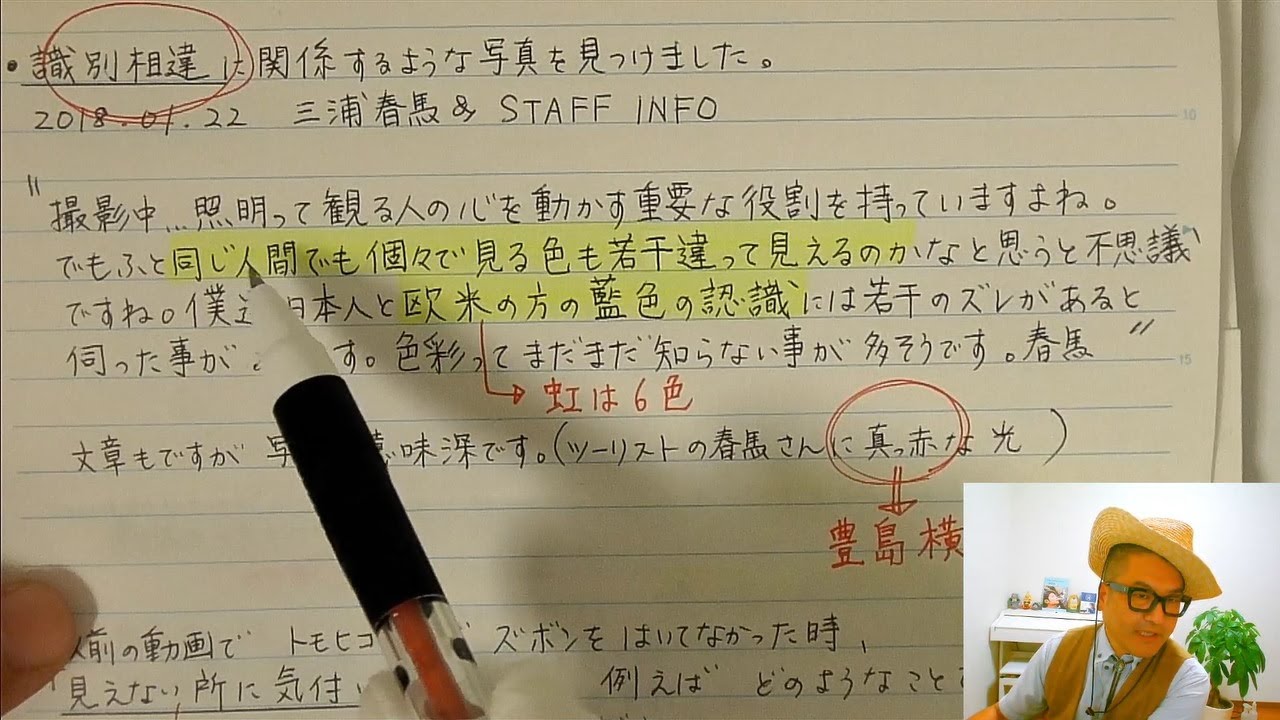 ・識別相違に関係するような写真を見つけました。
2018.01.22 三浦春馬& STAFF INFO
10
"撮影中…照明って観る人の心を動かす重要な役割を持っていますよね。
でもふと同じ人間でも個々で見る色も若干違って見えるのかなと思うと不思議
ですね。僕 日本人と欧米の方の藍色の認識には若干のズレがあると
伺った事が す。色彩ってまだまだ知らない事が多そうです。春馬"
15
虹は6色
文章もですが 写 意味深です。(ツーリストの春馬さんに真っ赤な光)
豊島横
前の動画で トモヒコ ズボンをはいてなかった時、
見えない所に気付い 例えば どのようなこと